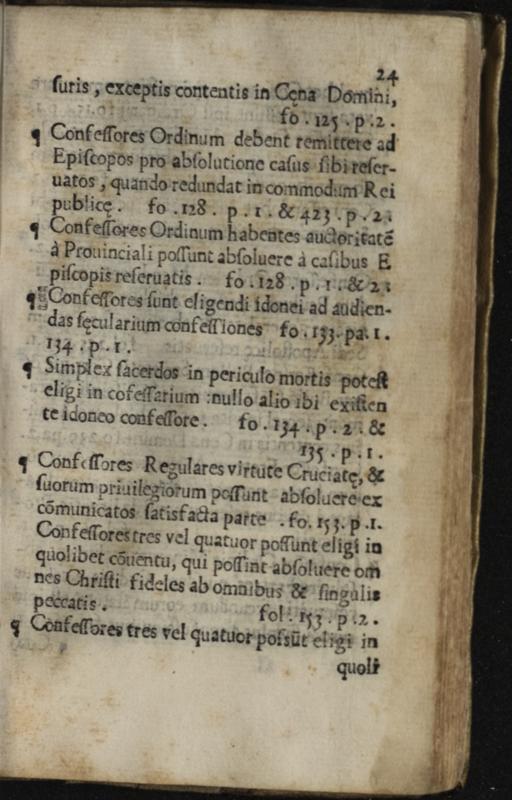 24
suris, exceptis contentis in Cęna Domini,
fo. 125. p. 2.
¶ Confessores Ordinum debent remittere ad
Episcopos pro absolutione casus sibi reser-
uatos, quando redundat in commodum Rei
publicę. fo. 128. p. 1. & 423. p. 2.
¶ Confessores Ordinum habentes auctoritatē
à Prouinciali possunt absoluere à casibus E
piscopis reseruatis. fo. 128. p. 1. & 2.
¶ Confessores sunt eligendi idonei ad audien-
das sęcularium confessiones fo. 133. pa. 1.
134. p. 1.
¶ Simplex sacerdos in periculo mortis potest
eligi in cofessarium: nullo alio ibi existen
te idoneo confessore. fo. 134. p. 2. &
135. p. 1.
¶ Confessores Regulares virtute Cruciatę, &
suorum priuilegiorum possunt absoluere ex
cōmunicatos satisfacta parte. fo. 153. p. 1.
Confessores tres vel quatuor possunt eligi in
quolibet cōuentu, qui possint absoluere om
nes Christi fideles ab omnibus & singulis
peccatis. fol. 153. p. 2.
¶ Confessores tres vel quatuor possūt eligi in
quoli